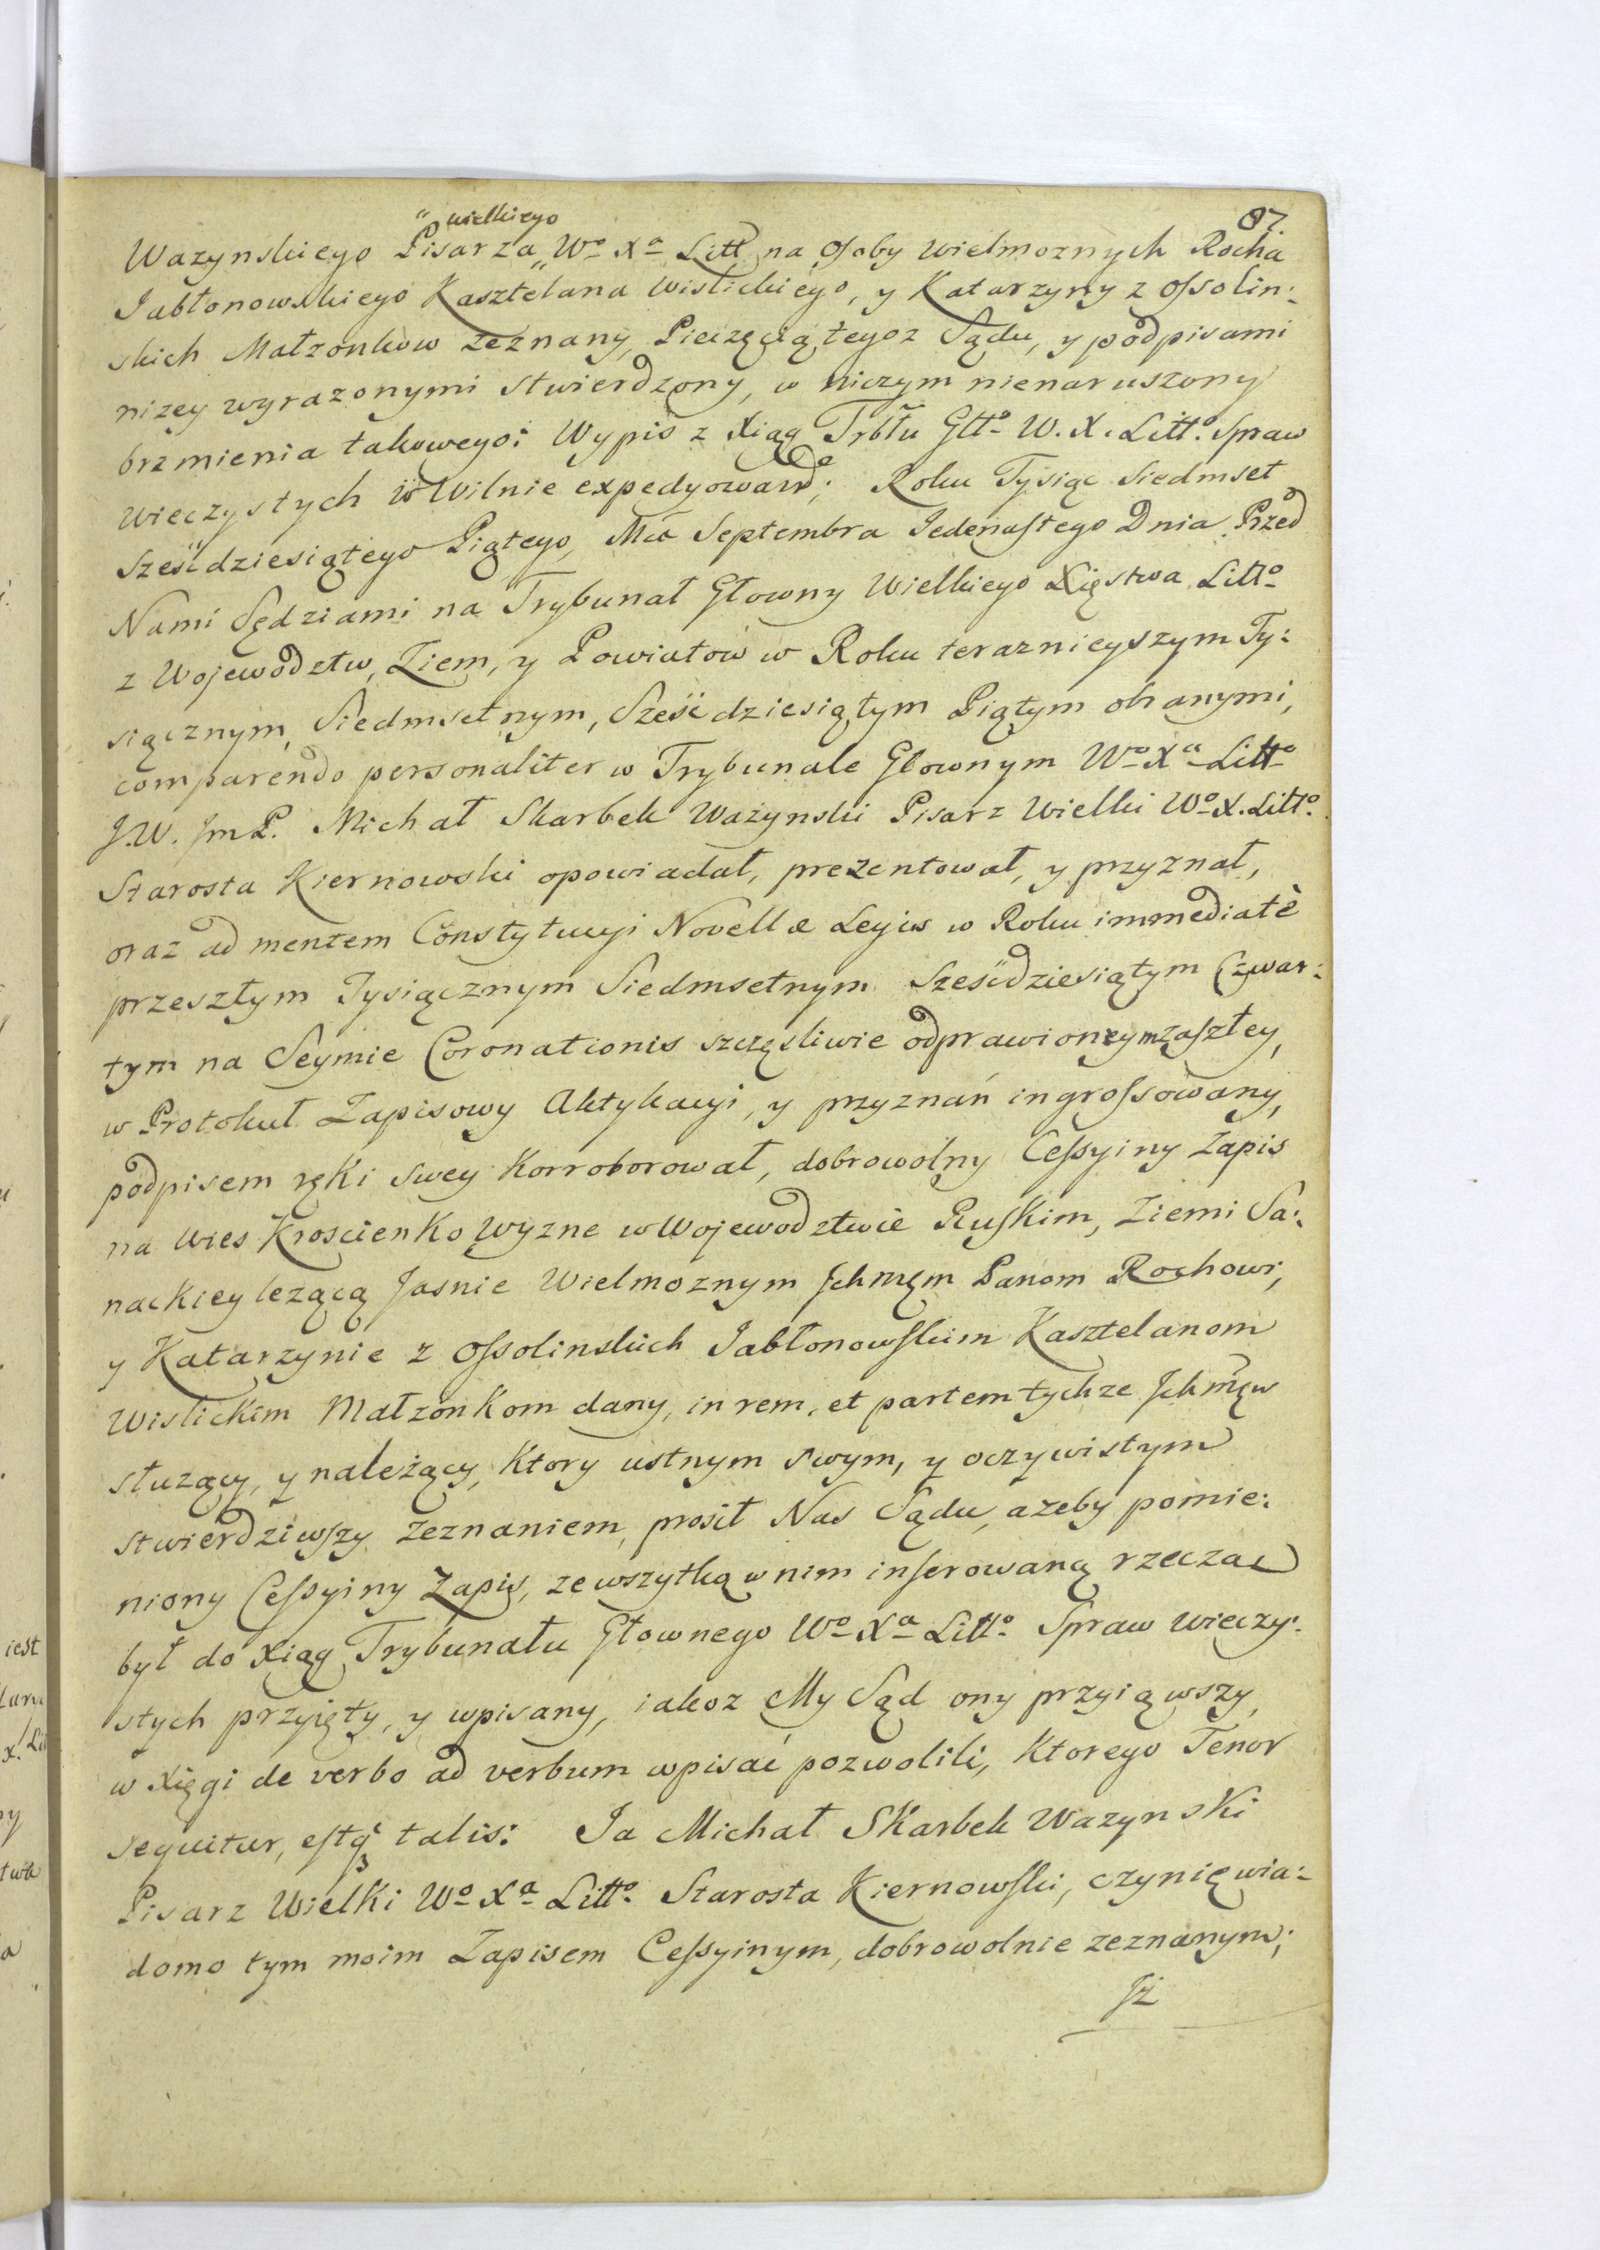 87
"wielkiego
Wazynskiego Pisarza" Wº Xª Litt na osoby wielmoznych Rocha
Jabłonowskiego Kasztelana Wislickiego, y Katarzyny z Ossolin:
skich Małzonkow zeznany, Pieczęcią tegoz Sądu, y podpisami
nizey wyrazonymi stwierdzony, w niczym nienaruszony
brzmienia takowego: Wypis z Xiąg Trbłu Głłº W. X. Littº Spraw
Wieczystych w Wilnie expedyowañ; Roku Tysiąc Siedmset
Sześćdziesiątego Piątego, Mca Septembra Jedenastego Dnia. Przed
Nami Sędziami na Trybunał Głowny Wielkiego Xięstwa Littº
z Wojewodztw, Ziem, y Powiatow w Roku teraznieyszym Ty:
siącznym, Siedmsetnym, Sześćdziesiątym Piątym obranymi,
comparendo personaliter w Trybunale Głownym Wº Xª Littº
J.W. JmP. Michał Skarbek Ważynski Pisarz Wielki Wº X. Littº
Starosta Kiernowski opowiadał, prezentował, y przyznał,
oraz ad mentem Constytucyi Novellæ Legis w Roku immediatè
przeszłym Tysiącznym Siedmsetnym Sześćdziesiątym Czwar:
tym na Seymie Coronationis szczęsliwie odprawionym zaszłey,
w Protokuł Zapisowy Aktykacyi, y przyznań ingrossowany,
podpisem ręki swey Korroborował, dobrowolny Cessyiny Zapis
na Wies Kroscienko Wyzne w Wojewodztwie Ruskim, Ziemi Sa:
nackiey lezącą Jasnie Wielmoznym Ichmęm Panom Rochowi,
y Katarzynie z Ossolinskich Jabłonowskim Kasztelanom
Wislickim Małzonkom dany, in rem, et partem tychze Ichmęw
słuzący, y należący, Ktory ustnym swym, y oczywistym
stwierdziwszy zeznaniem, prosił Nas Sądu, azeby pomie:
niony Cessyiny Zapis, ze wszytką w nim inserowaną rzeczą
był do Xiąg Trybunału Głownego Wº Xª Littº Spraw Wieczy:
stych przyięty, y wpisany, iakoz My Sąd ony przyiąwszy,
w Xięgi de verbo ad verbum wpisać pozwolili, Ktorego Tenor
sequitur, estq3 talis: Ja Michał Skarbek Wazynski
Pisarz Wielki Wº Xª Littº Starosta Kiernowski, czynię wia:
domo tym moim Zapisem Cessyinym, dobrowolnie zeznanym;
Jż